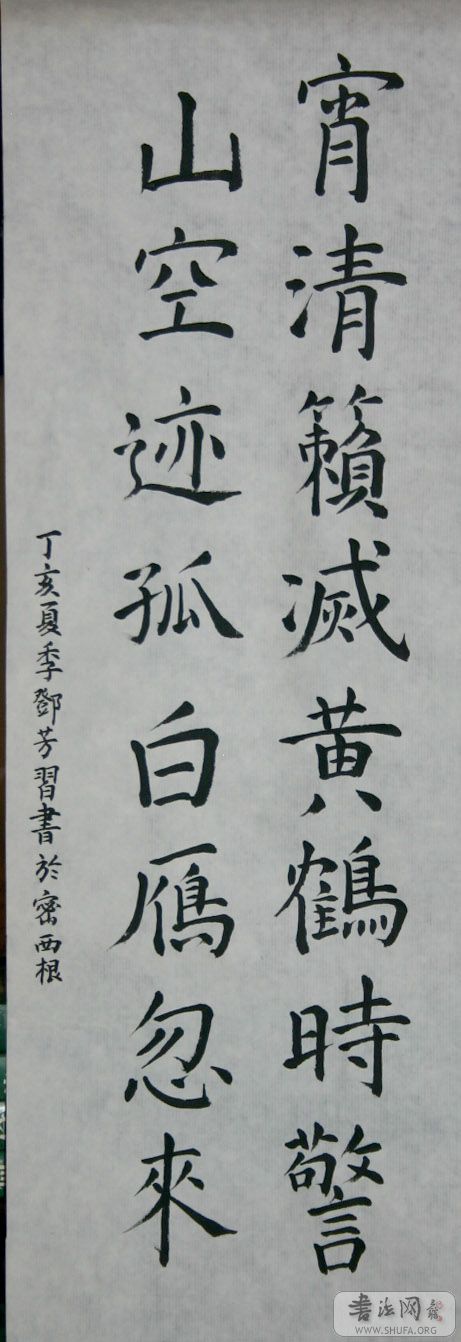 宵清籟滅黄鶴時警
山空迹孤白鴈忽來
丁亥夏季鄧芳習書於密西根
書法网
WWW.SHUFA.ORG